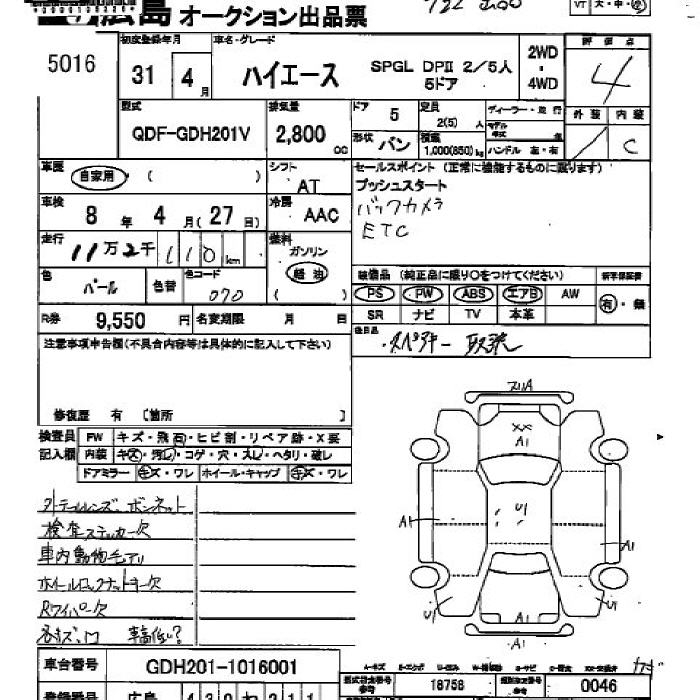 広島 オークション出品票
VT 大・中・小
5016
初度登録年月
31 4月
車名・グレード
ハイエース SPGL DPⅡ 2/5人
5ドア
2WD
・
4WD
評価点
4
型式
QDF-GDH201V
排気量
2,800 cc
ドア 5
定員
2(5) 人
ディーラー・並行
モデル
年式
外装 内装
C
形状 バン
積載
1,000(850) kg
ハンドル 左・右
車歴
自家用 ( )
シフト
AT
セールスポイント (正常に機能するものに限ります)
プッシュスタート
バックカメラ
ETC
車検
8 年 4 月 (27 日)
冷房
AAC
走行
11万2千110km
燃料
ガソリン
軽油
装備品 (純正品に限り○をつけてください) 新車保証書
PS PW ABS エアB AW 有・無
SR ナビ TV 本革
色
パール
色替
色コード
070
R券 9,550 円
名変期限 月 日
後日品
・スペアキー 取説
注意事項申告欄(不具合内容等は具体的に記入して下さい)
修復歴 有 [箇所 ]
検査員
記入欄
FW キズ・飛石・ヒビ割・リペア跡・X要
内装 キズ・汚レ・コゲ・穴・スレ・ヘタリ・破レ
ドアミラー キズ・ワレ ホイール・キャップ キズ・ワレ
外テールレンズ、ボンネット
検査ステッカー欠
車内動物毛アリ
ホイールロックナットキー欠
Rワイパー欠
各キズ、凹 車高低い?
XX
A1
U1
A1
A1
U1
A1
U1
A1
A-キズ E-エクボ U-凹ミ W-補修跡 S-サビ C-腐食 XX-交換済
車台番号 GDH201-1016001
型式指定番号
参考
18758
類別番号
参考
0046
登録番号 広島